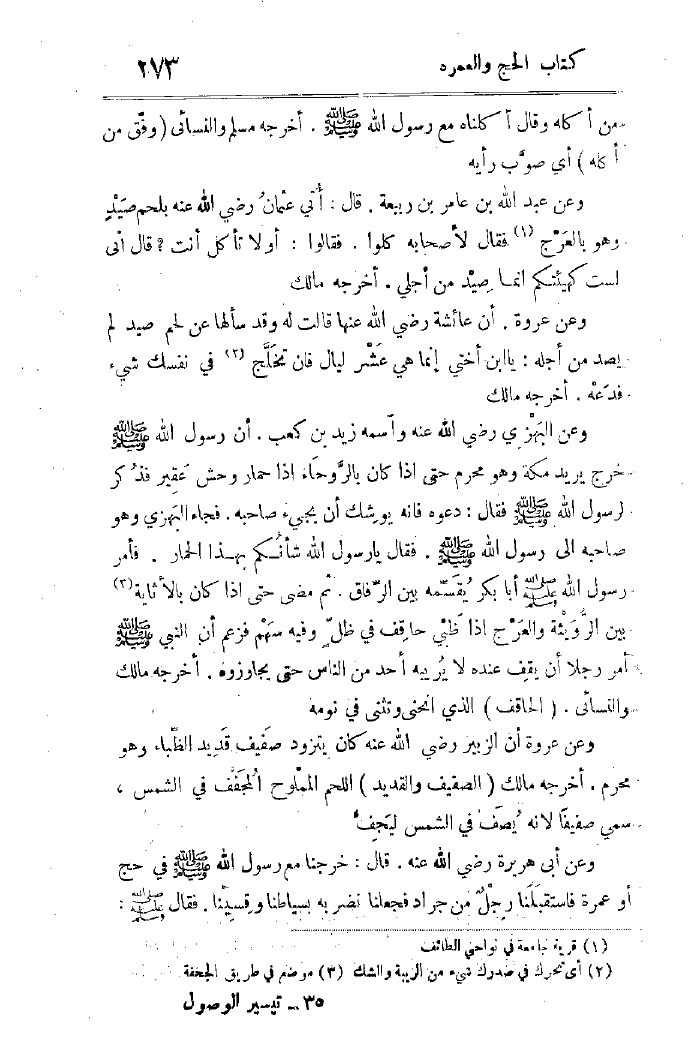 كتاب الحج والعمره ٢٧٣
من أكله وقال أكلناه مع رسول الله ﷺ . أخرجه مسلم والنسائى (وفّق من
أكله) أي صوَّب رأيه
وعن عبد الله بن عامر بن ربيعة . قال : أُتي عثمانُ رضي الله عنه بلحم صَيْدٍ
وهو بالعَرْج (١) فقال لأصحابه كلوا . فقالوا : أولا تأكل أنت ? قال أنى
لست كهيئتكم انما صِيْد من أجلي . أخرجه مالك
وعن عروة . أن عائشة رضي الله عنها قالت له وقد سألها عن لحم صيد لم
يصد من أجله : ياابن أختي إنما هي عَشْر ليال فان تَخَلَّج (٢) في نفسك شيء
فدَعْه . أخرجه مالك
وعن البَهْزي رضي الله عنه وآسمه زيد بن كعب . أن رسول الله ﷺ
خرج يريد مكة وهو محرم حتى اذا كان بالرَّوحَاء اذا حمار وحش عَقِير فذُكر
لرسول الله ﷺ فقال : دعوه فانه يوشك أن يجيء صاحبه . فجاء البَهزي وهو
صاحبه الى رسول الله ﷺ . فقال يارسول الله شأنُكم بهذا الحمار . فأمر
رسول الله ﷺ أبا بكر يُقسّمه بين الرّفاق . ثم مضى حتى اذا كان بالأثاية (٣)
بين الرُّوَيْثة والعَرْج اذا ظَبْي حاقِف في ظلٍّ وفيه سهْم فزعم أن النبي ﷺ
أمر رجلا أن يقف عنده لا يُريبه أحد من الناس حتى يجاوزوه . أخرجه مالك
والنسائى . (الحاقف) الذي انحنى وتثنى في نومه
وعن عروة أن الزبير رضي الله عنه كان يتزود صَفيف قَديد الظّباء وهو
محرم . أخرجه مالك (الصفيف والقديد) اللحم المملوح المُجفّف في الشمس ،
سمي صفيفًا لانه يُصَفّ في الشمس ليَجِفّ
وعن أبى هريرة رضي الله عنه . قال : خرجنا مع رسول الله ﷺ في حج
أو عمرة فاستقبلَنا رِجلٌ من جراد فجعلنا نضربه بسياطنا وقسيّنا . فقال ﷺ :
(١) قرية جامعة في نواحي الطائف
(٢) أى تحرك في صدرك شيء من الريبة والشك (٣) موضع في طريق الجحفة
٣٥ ــ تيسير الوصول